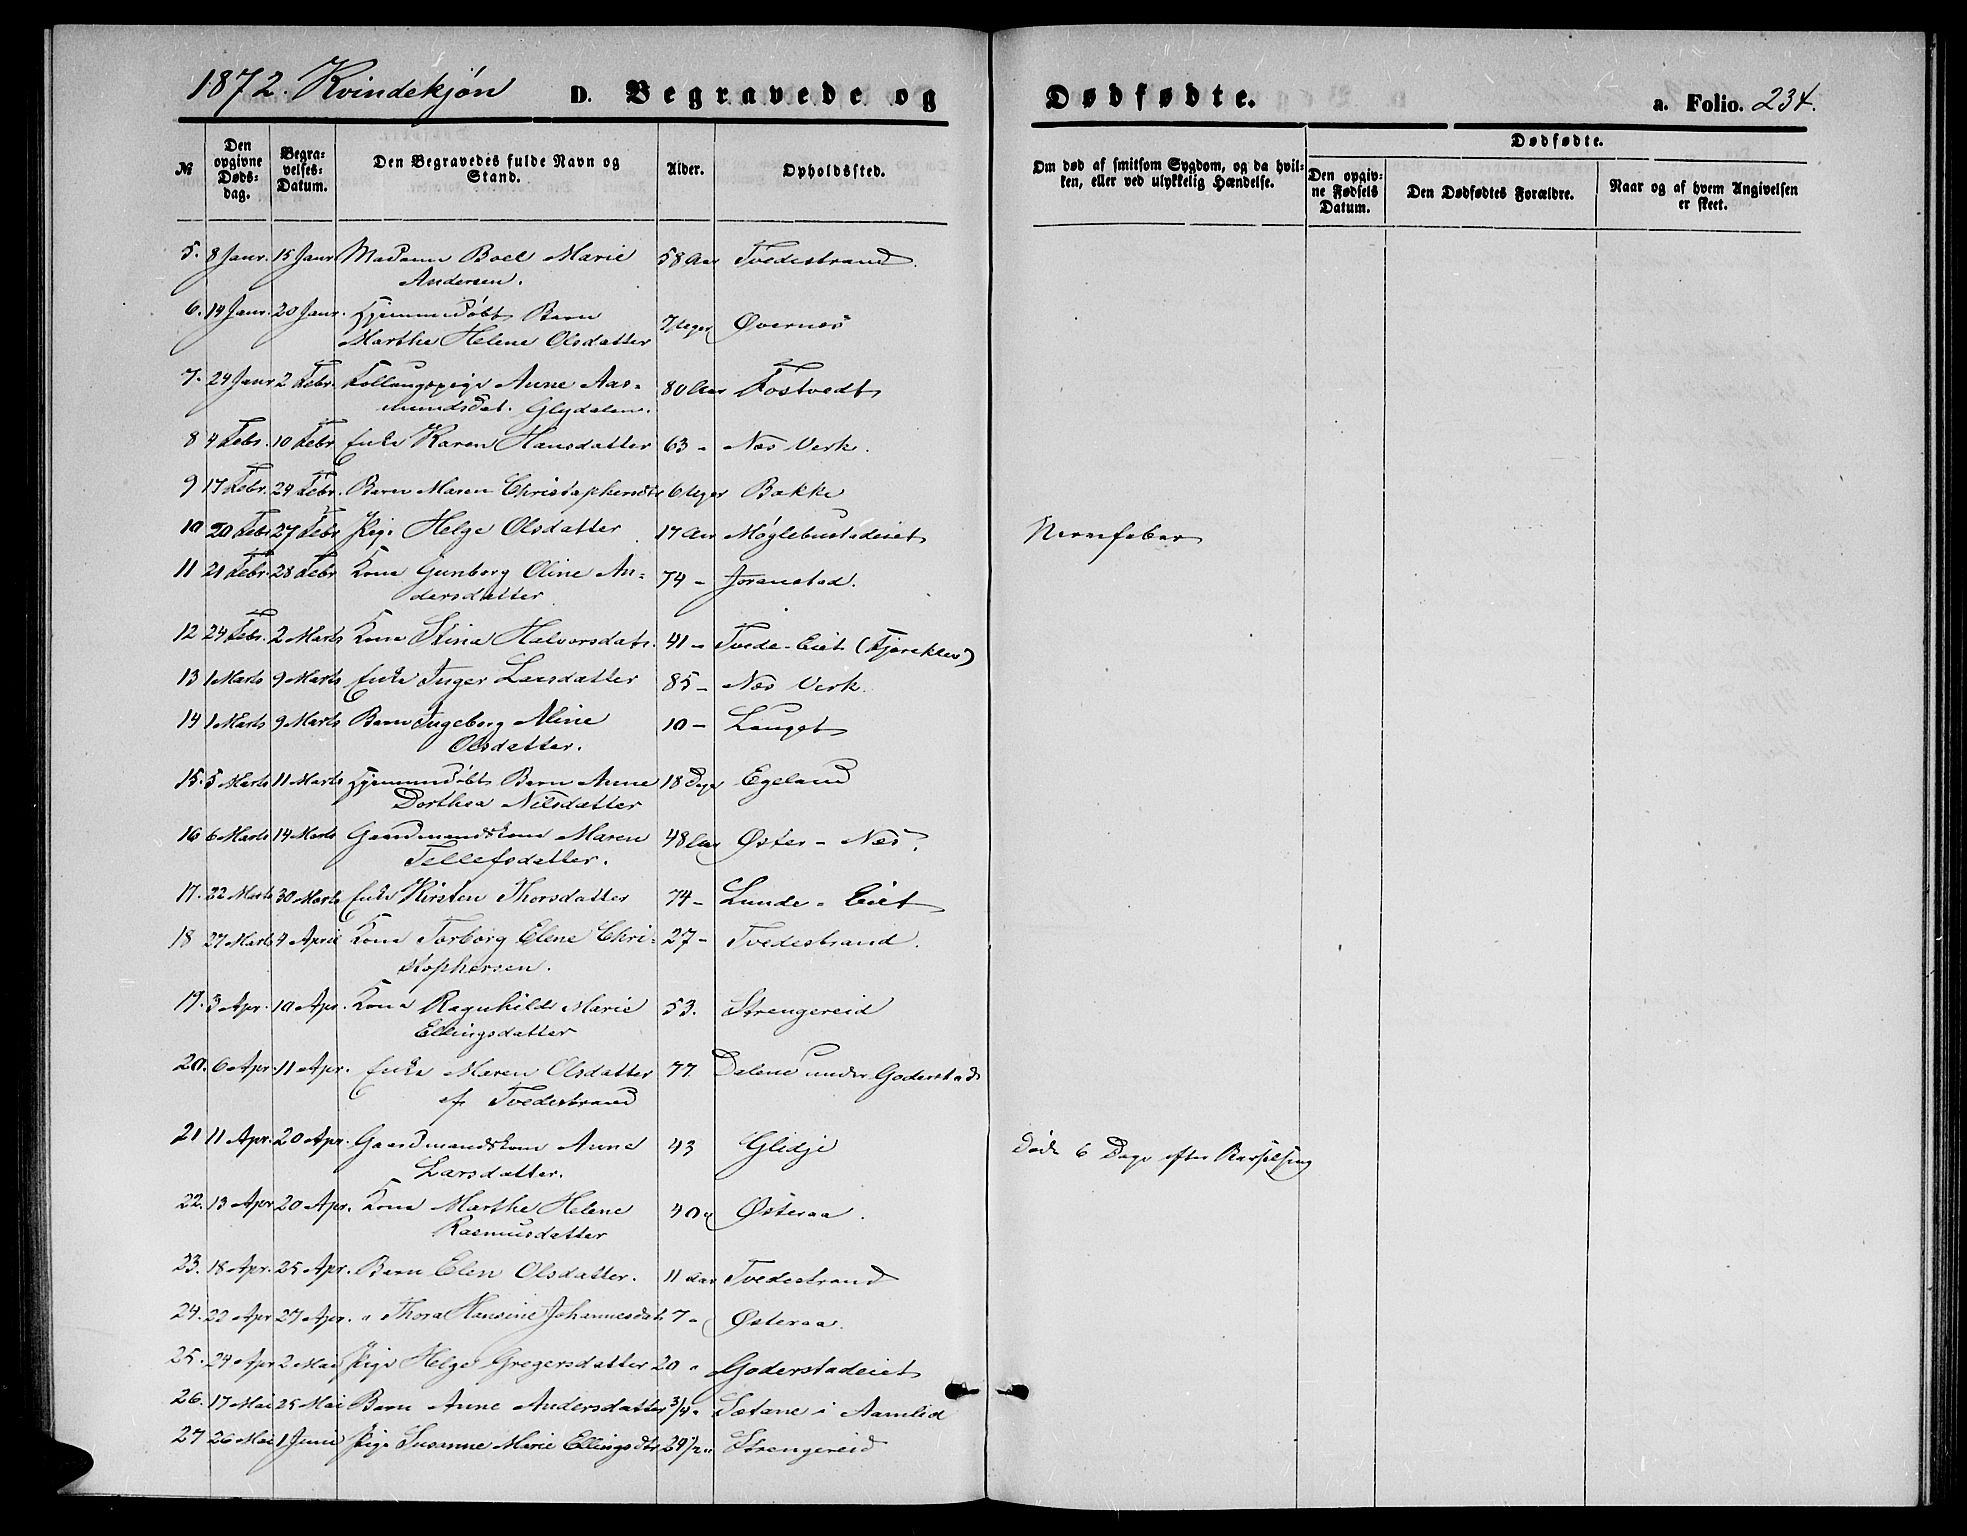 1872. Kvindekjøn D. Begravede og Dødfødte. a. Folio. 234.
Dødfødte.
№ Den opgivne Døds-dag. Begra-velses-Datum. Den Begravedes fulde Navn og Stand. Alder. Opholdssted. Om død af smitsom Sygdom, og da hvil-ken, eller ved ulykkelig Hændelse. Den opgiv-ne Fødsels Datum. Den Dødfødtes Forældre. Naar og af hvem Angivelsen er skeet.
5. 8 Janr. 15 Janr Madame Boel Marie 58 Aar Tvedestrand.
Andersen.
6. 14 Janr. 20 Janr. Hjemmedøbt Barn
Marthe Helene Olsdatter 7 Uger Øvernes
7. 24 Janr 2 Febr. Anne Aas- 80 Aar Fostvedt
mundsdat. Glydalen.
8 4 Febr. 10 Febr Enke Karen Hansdatter 63 " Næs Verk.
9 17 Febr. 24 Febr. Barn Maren Christophersdtr 6 Uger Bakke
10 20 Febr 27 Febr Pige Helge Olsdatter 17 Aar Møglebustadeiet Nervefeber
11 21 Febr. 28 Febr Kone Gunborg Oline An- 74 - Joranstad.
dersdatter
12 24 Febr. 2 Marts Kone Stina Halvorsdatr. 41 " Tvede-Eiet
13 1 Marts 9 Marts Enke Inger Larsdatter 85 - Næs Verk.
14 1 Marts 9 Marts Barn Ingeborg Aline 10 - Lauget
Olsdatter.
15. 5 Marts 11 Marts Hjemmedøbt Barn Anne 18 Dage Egeland
Dorthea Nilsdatter
16 6 Marts 14 Marts Gaardmandskone Maren 48 Aar Øster-Næs.
Tellefsdatter.
17. 22 Marts 30 Marts Enke Kirsten Thorsdatter 74 - Lunde-Eiet
18 27 Marts 4 April Kone Torborg Elene Chri- 27 - Tvedestrand.
stophersen.
19. 3 Apr. 10 Apr. Kone Ragnhild Marie 53. Strengereid
Ellingsdatter
20. 6 Apr. 11 Apr. Enke Maren Olsdatter 77 Dalene under Goderstad
af Tvedestrand
21 11 Apr. 20 Apr. Gaardmandskone Anne 43 Glidje Døde 6 Dage efter Barselseng
Larsdatter.
22. 13 Apr 20 Apr. Kone Marthe Helene 40 " Østeraa.
Rasmusdatter
23. 18 Apr. 25 Apr. Barn Elen Olsdatter. 11 Aar Tvedestrand
24. 22 Apr 27 Apr. " Thora Hansine Johannesdat. 7 " Østeraa.
25. 24 Apr 2 Mai Pige Helge Gregersdatter 20 " Goderstadeiet
26. 17 Mai 25 Mai Barn Anne Andersdatter 3/4 " Sætane i Aamlid
27 26 Mai 1 Juni Pige Susanne Marie Ellingsdtr 24 1/2 " Strengereid